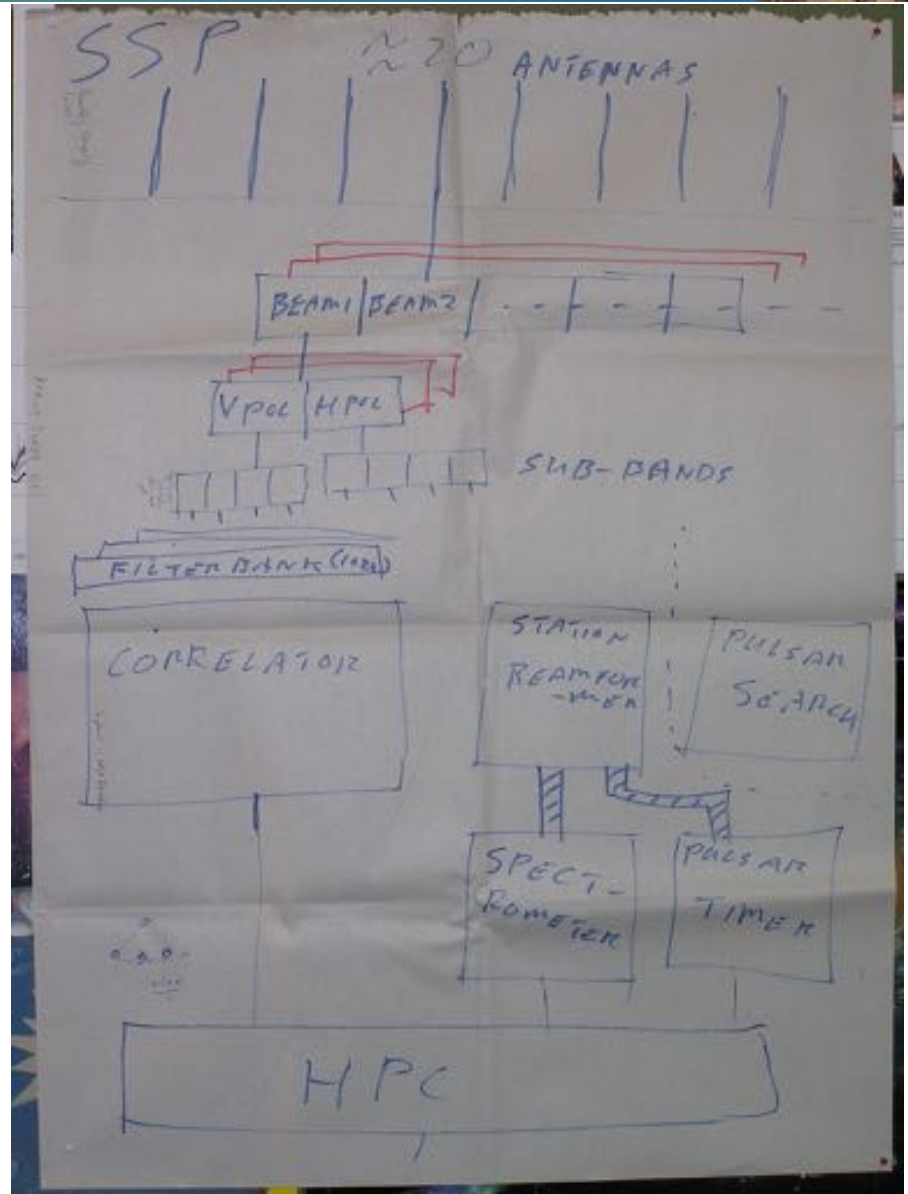 SSP ≈20 ANTENNAS
BEAM1 BEAM2
V POL H POL
SUB-BANDS
FILTER BANK
CORRELATOR
STATION
BEAMFOR
-MER
PULSAR
SEARCH
SPECT-
ROMETER
PULSAR
TIMER
HPC